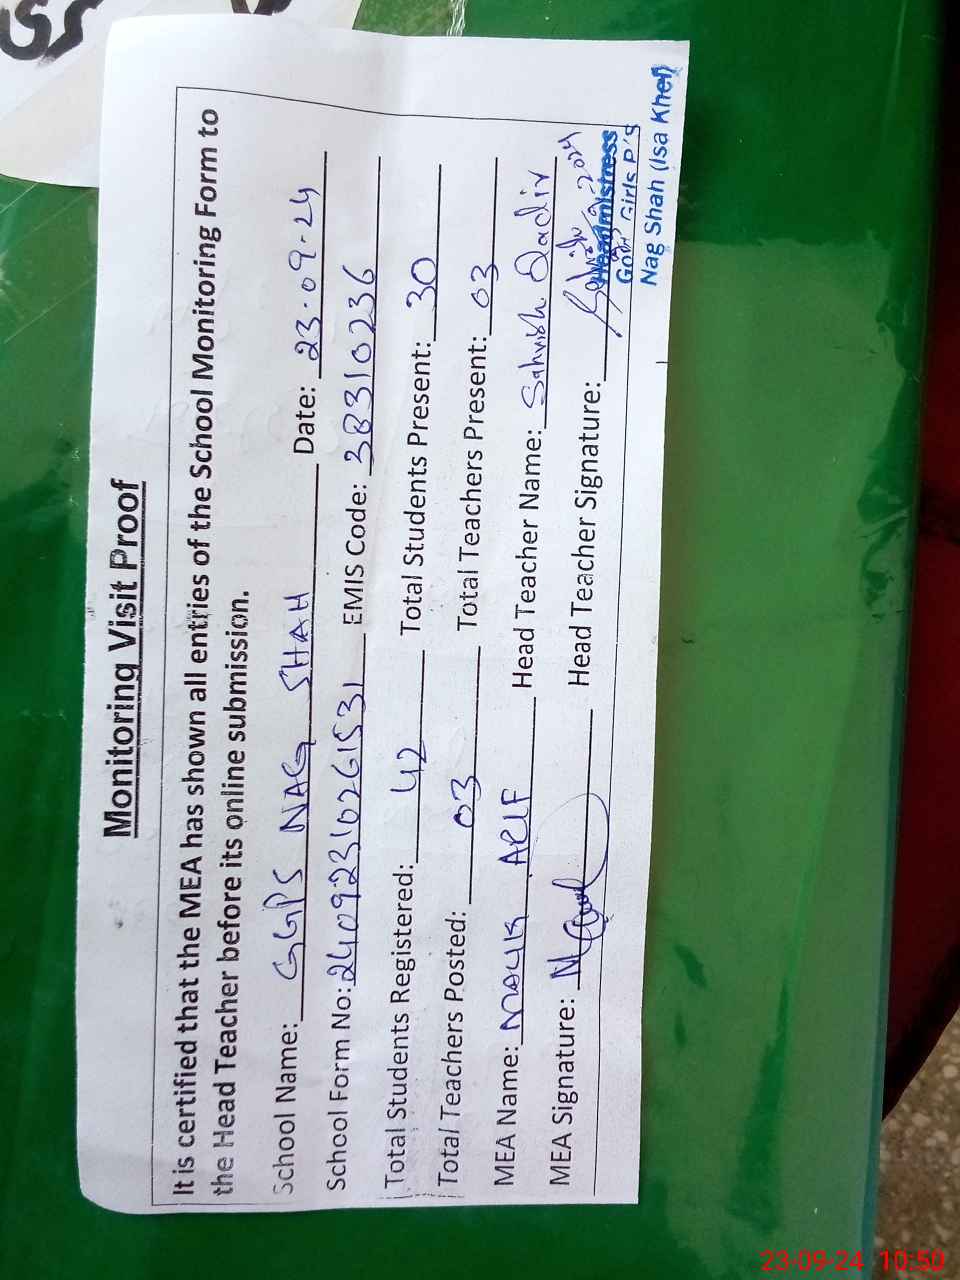 Monitoring Visit Proof
It is certified that the MEA has shown all entries of the School Monitoring Form to
the Head Teacher before its online submission.
School Name: GGPS NAG SHAH Date: 23-09-24
School Form No: 24092310261531 EMIS Code: 38310236
Total Students Registered: 42 Total Students Present: 30
Total Teachers Posted: 03 Total Teachers Present: 03
MEA Name: MALIK ARIF Head Teacher Name: Sahvish Qadir
MEA Signature: Head Teacher Signature:
Headmistress
Govt: Girls P/S
Nag Shah (Isa Khel)
23-09-24 10:50